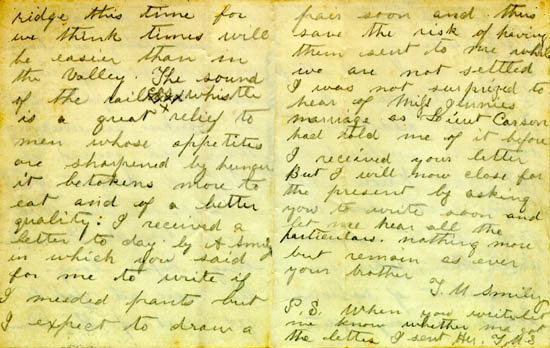 ridge this time for
we think times will
be easier than in
the Valley. The sound
of the rail whistle
is a great relief to
men whose appetites
are sharpened by hunger
it betokens more to
eat and of a better
quality: I received a
letter to day by A Smiley
in which you said
for me to write if
I needed pants but
I expect to draw a
pair soon and thus
save the risk of having
them sent to me while
we are not settled
I was not surprized to
hear of Miss
marriage as Lieut Carson
had told me of it before
I received your letter
But I will now close for
the present by asking
you to write soon and
let me hear all the
particulars. nothing more
but remain as ever
your brother
T. M Smiley
P.S. When you write let
me know whether ma got
the letter I sent Her. T M S